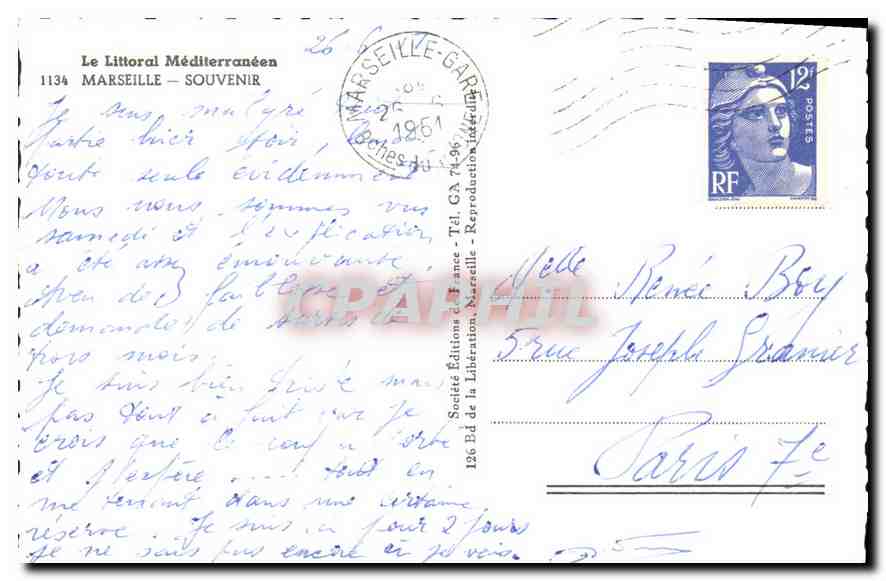 Le Littoral Méditerranéen
1134 MARSEILLE — SOUVENIR
26 6
MARSEILLE-GARE
1951
Bches du
12f
POSTES
RF
Je suis malgré
hier soir,
toute seule évidemment
Nous nous sommes vus
samedi et l'explication
a été assez émouvante,
Aveu de faiblesse et
demandes de sursis
trois mois.
Je suis bien mais
pas tout à fait car je
crois que ce
et j'espère ..... tout en
me tenant dans une certaine
réserve. Je suis pour 2 jours
Je ne sais pas encore où je vais.
Société Editions de France - Tél. GA 74-96
126 Bd de la Libération, Marseille - Reproduction interdite
Melle Renée Boy
5 rue Joseph Granier
Paris 7e
CPAPHIL